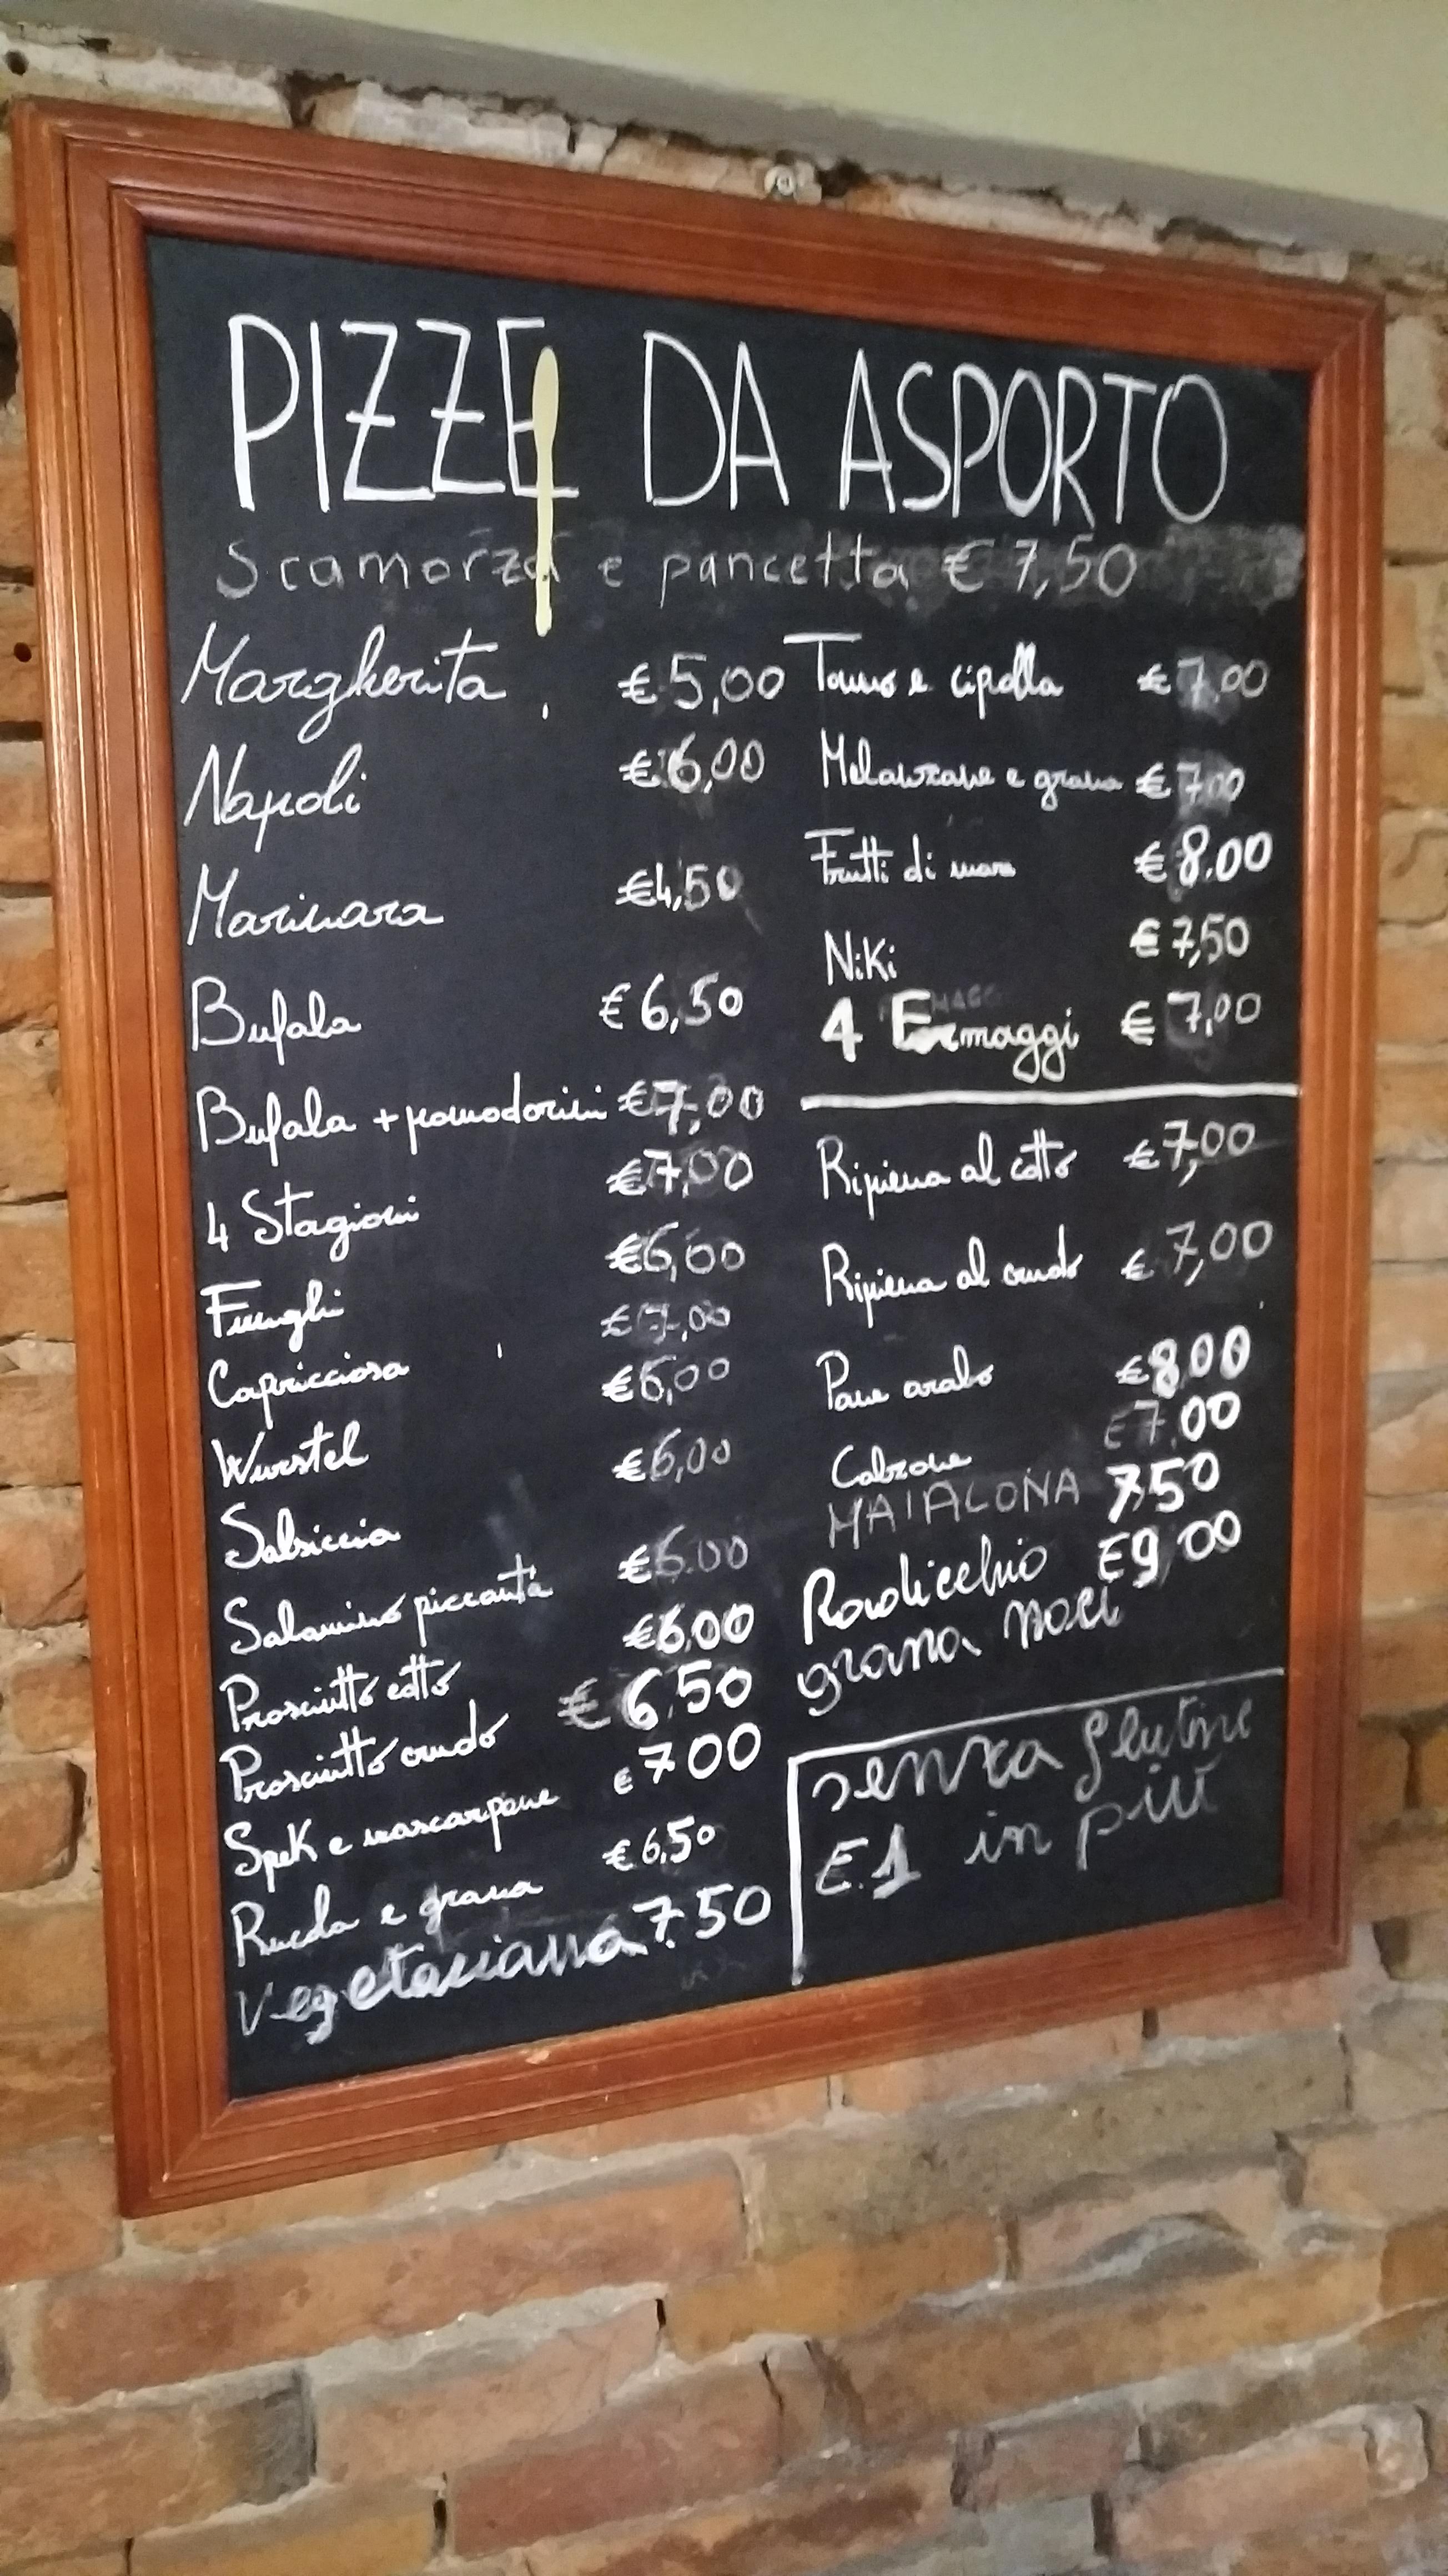 PIZZE DA ASPORTO
Scamorza e pancetta € 7,50
Margherita € 5,00
Napoli € 6,00
Marinara € 4,50
Bufala € 6,50
Bufala + pomodorini € 7,00
4 Stagioni € 7,00
Funghi € 6,00
Capricciosa € 7,00
Wurstel € 6,00
Salsiccia € 6,00
Salamino piccante € 6.00
Prosciutto cotto € 6.00
Prosciutto crudo € 6,50
Spek e mascarpone € 7 00
Rucola e grana € 6,50
Vegetariana 7.50
Tonno e cipolla € 7,00
Melanzane e grana € 7,00
Frutti di mare € 8.00
Niki € 7,50
4 Formaggi € 7,00
Ripiena al cotto € 7,00
Ripiena al crudo € 7,00
Pane arabo € 8,00
Calzone € 7.00
MAIALONA 7,50
Radicchio € 9,00
grana noci
senza glutine
E.1 in più